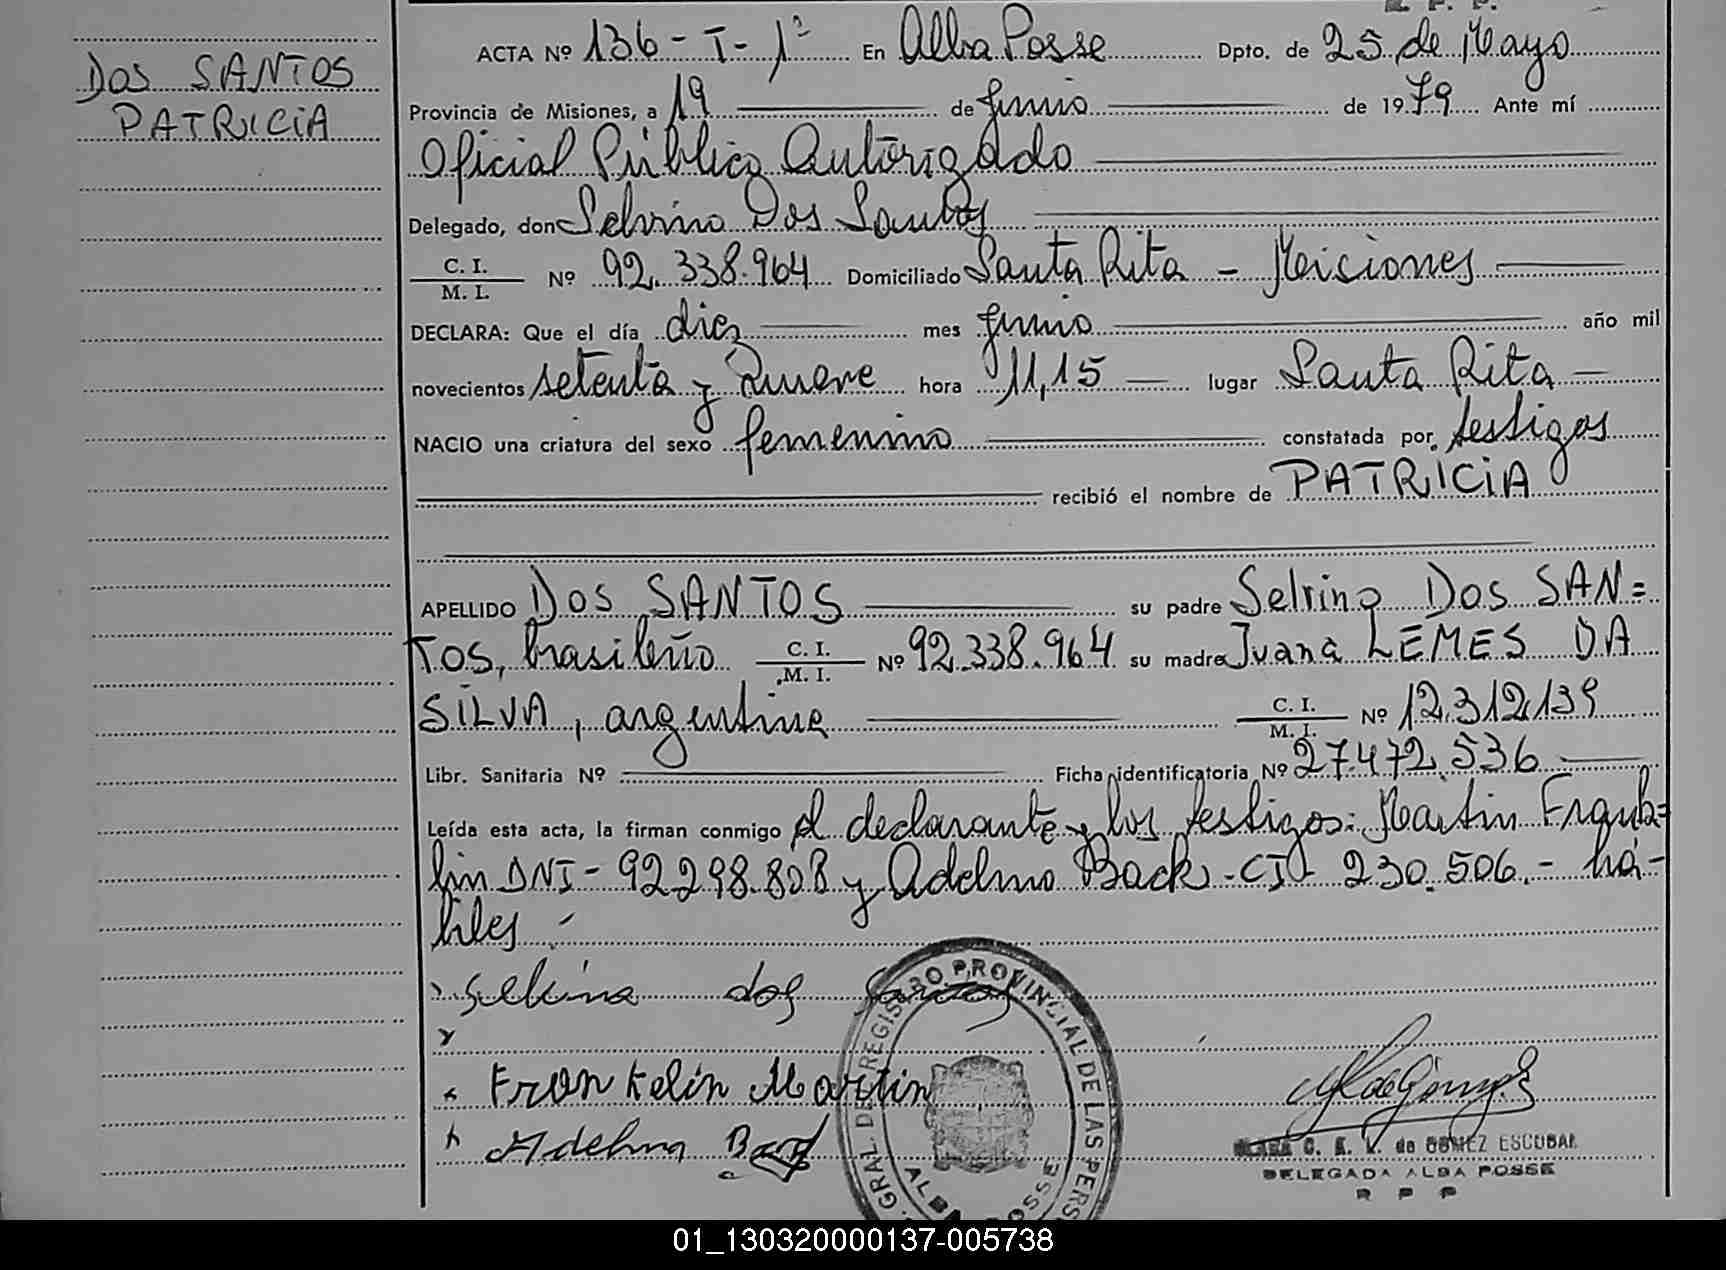 DOS SANTOS
PATRICIA
ACTA Nº 136 - I - 1ª En Alba Posse Dpto. de 25 de Mayo
Provincia de Misiones, a 19 de junio de 1979 Ante mí
Oficial Público Autorizado
Delegado, don Selvino Dos Santos
C. I. / M. I. Nº 92.338.964 Domiciliado Santa Rita - Meiciones
DECLARA: Que el día diez mes junio año mil
novecientos setenta y Nueve hora 11,15 lugar Santa Rita
NACIO una criatura del sexo femenino constatada por testigos
recibió el nombre de PATRICIA
APELLIDO DOS SANTOS su padre Selvino Dos SAN=
TOS, brasileño C. I. / M. I. Nº 92.338.964 su madre Juana LEMES DA
SILVA, argentina C. I. / M. I. Nº 12.312.139
Libr. Sanitaria Nº Ficha identificatoria Nº 27.472.536
Leída esta acta, la firman conmigo el declarante y los testigos: Martin Frank=
lin DNI - 92298.808 y Adelmo Back - CI - 230.506.- há-
biles.-
Selvino dos Santos
Fronkelin Martin
Adelmo Back
GRAL. DEL REGISTRO PROVINCIAL DE LAS PERS
ALBA POSSE
C. E. V. de GOMEZ ESCOBAR
DELEGADA ALBA POSSE
R P P
01_130320000137-005738